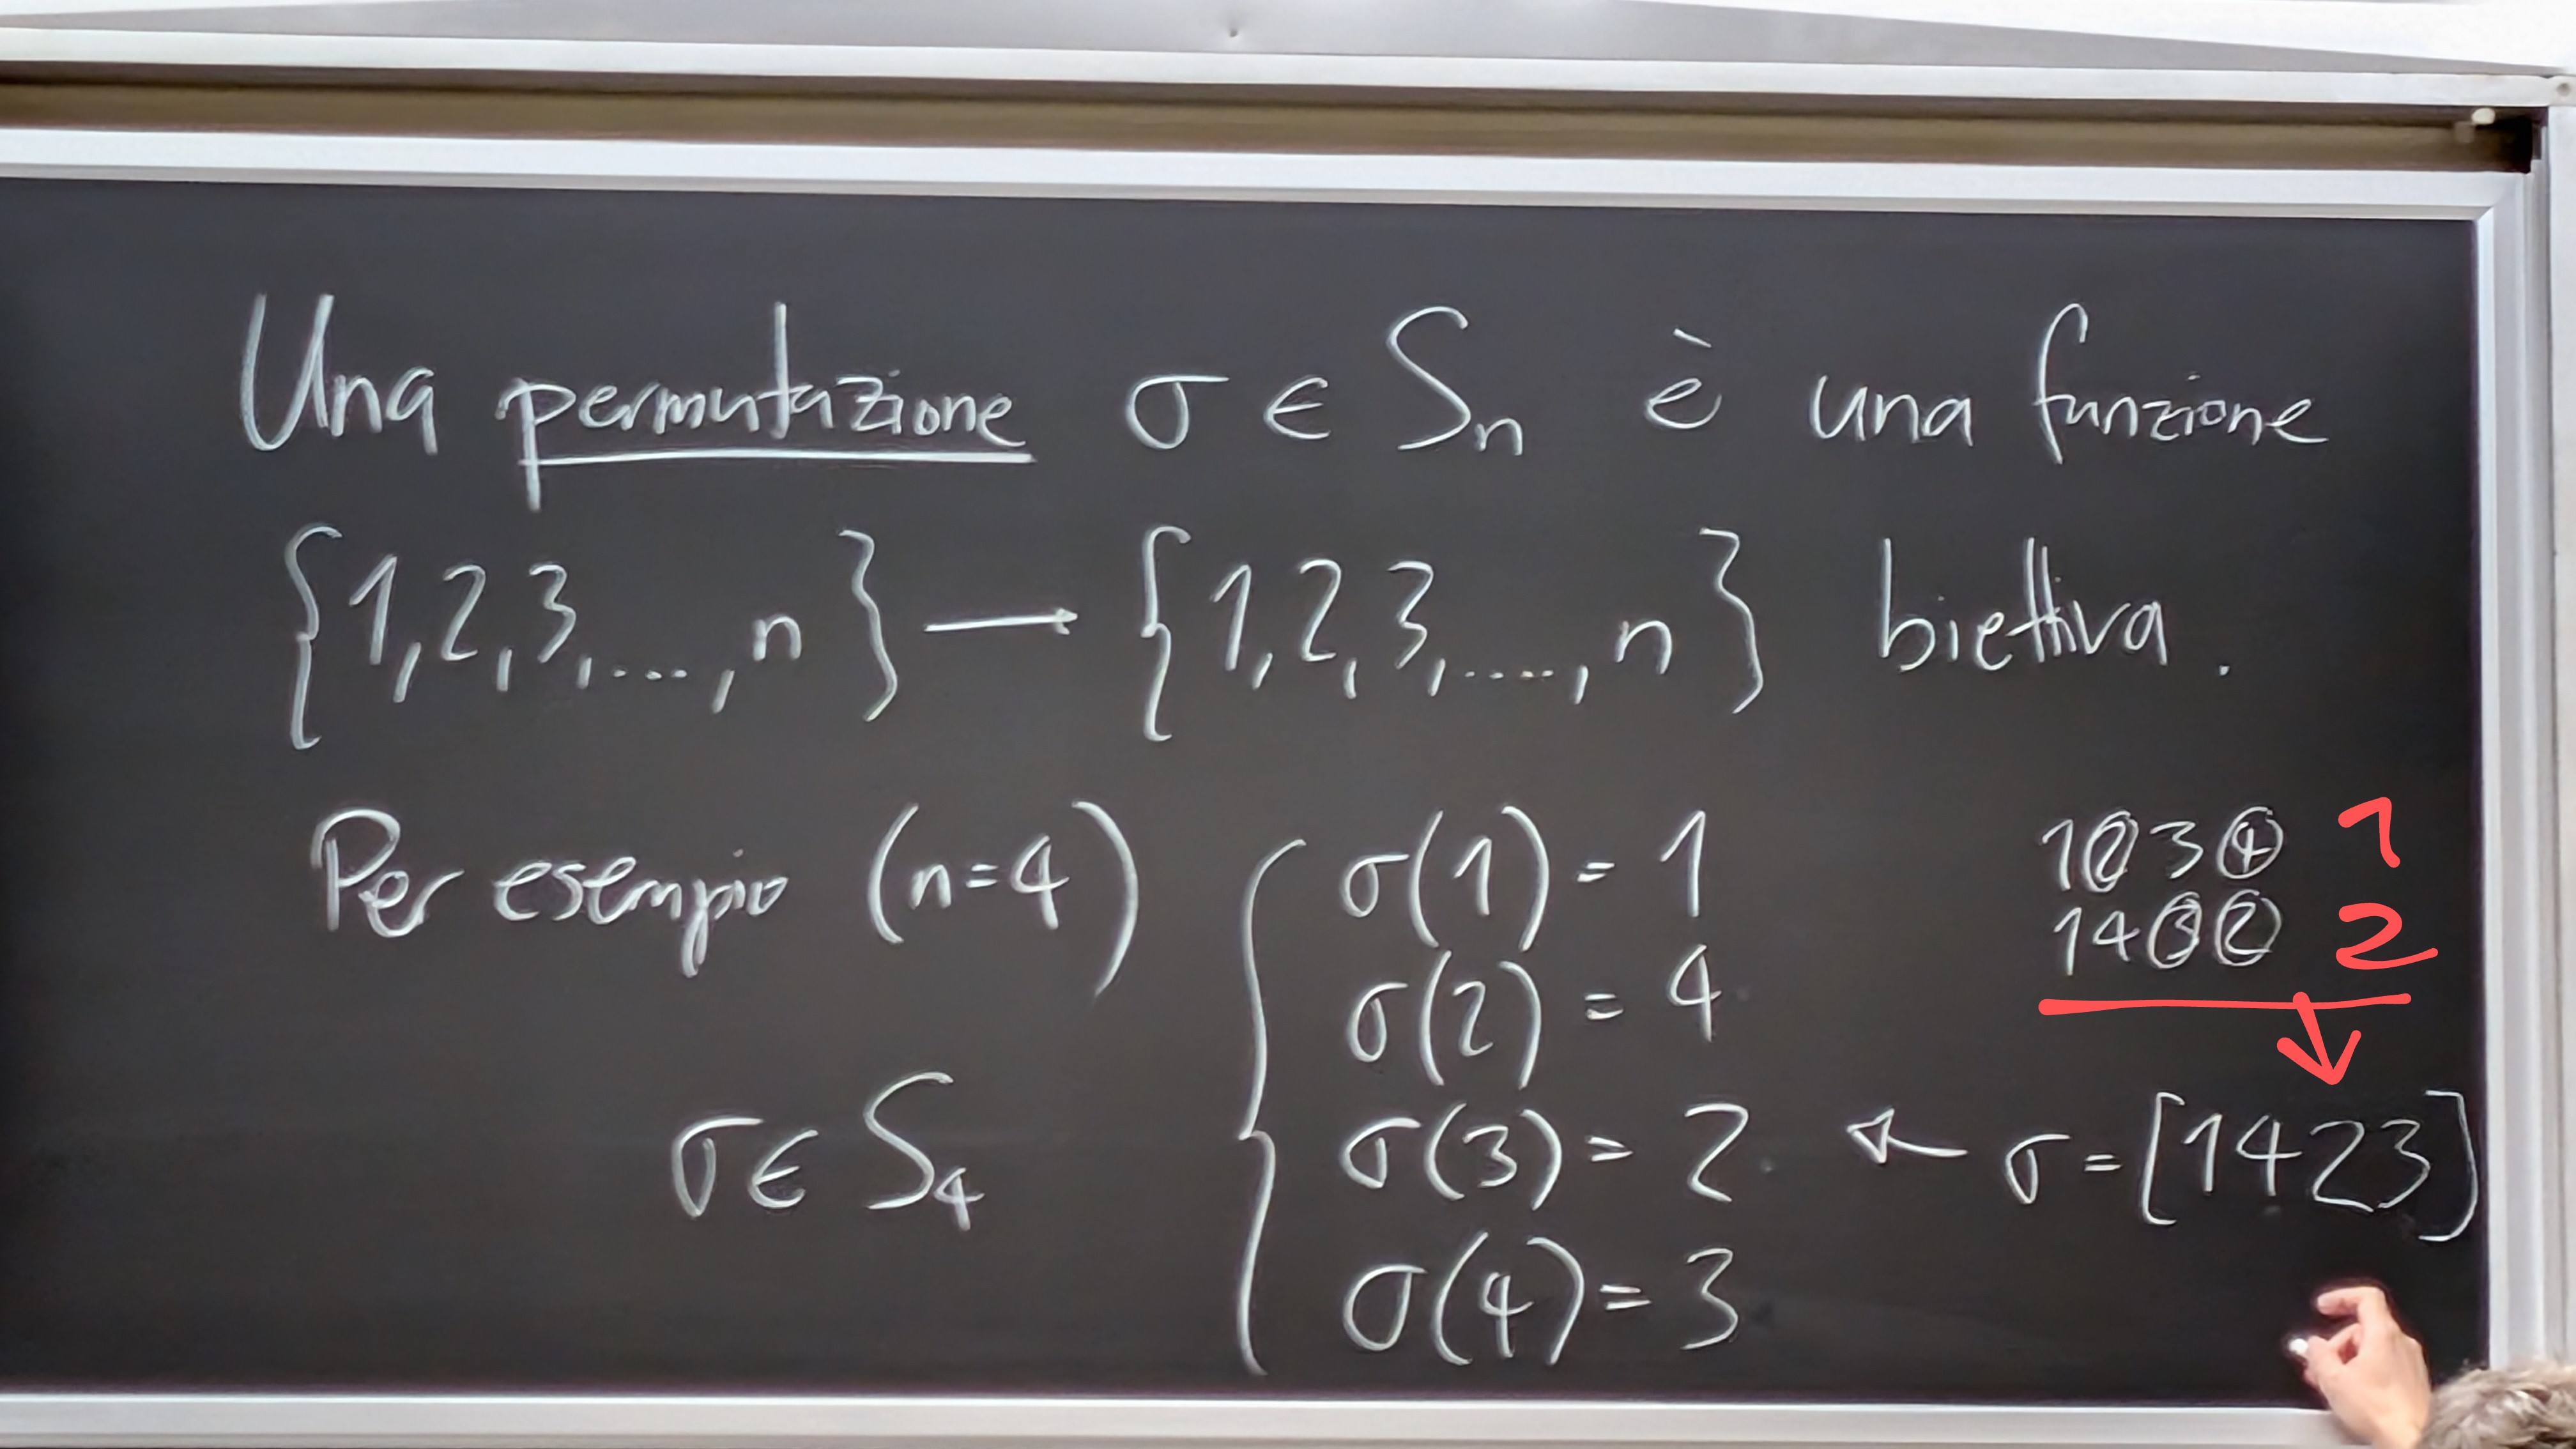 Una permutazione σ ∈ Sₙ è una funzione
{1,2,3,...,n} → {1,2,3,....,n} biettiva.
Per esempio (n=4)
σ ∈ S₄
σ(1) = 1
σ(2) = 4
σ(3) = 2
σ(4) = 3
1②3④ 1
14③② 2
← σ = [1423]